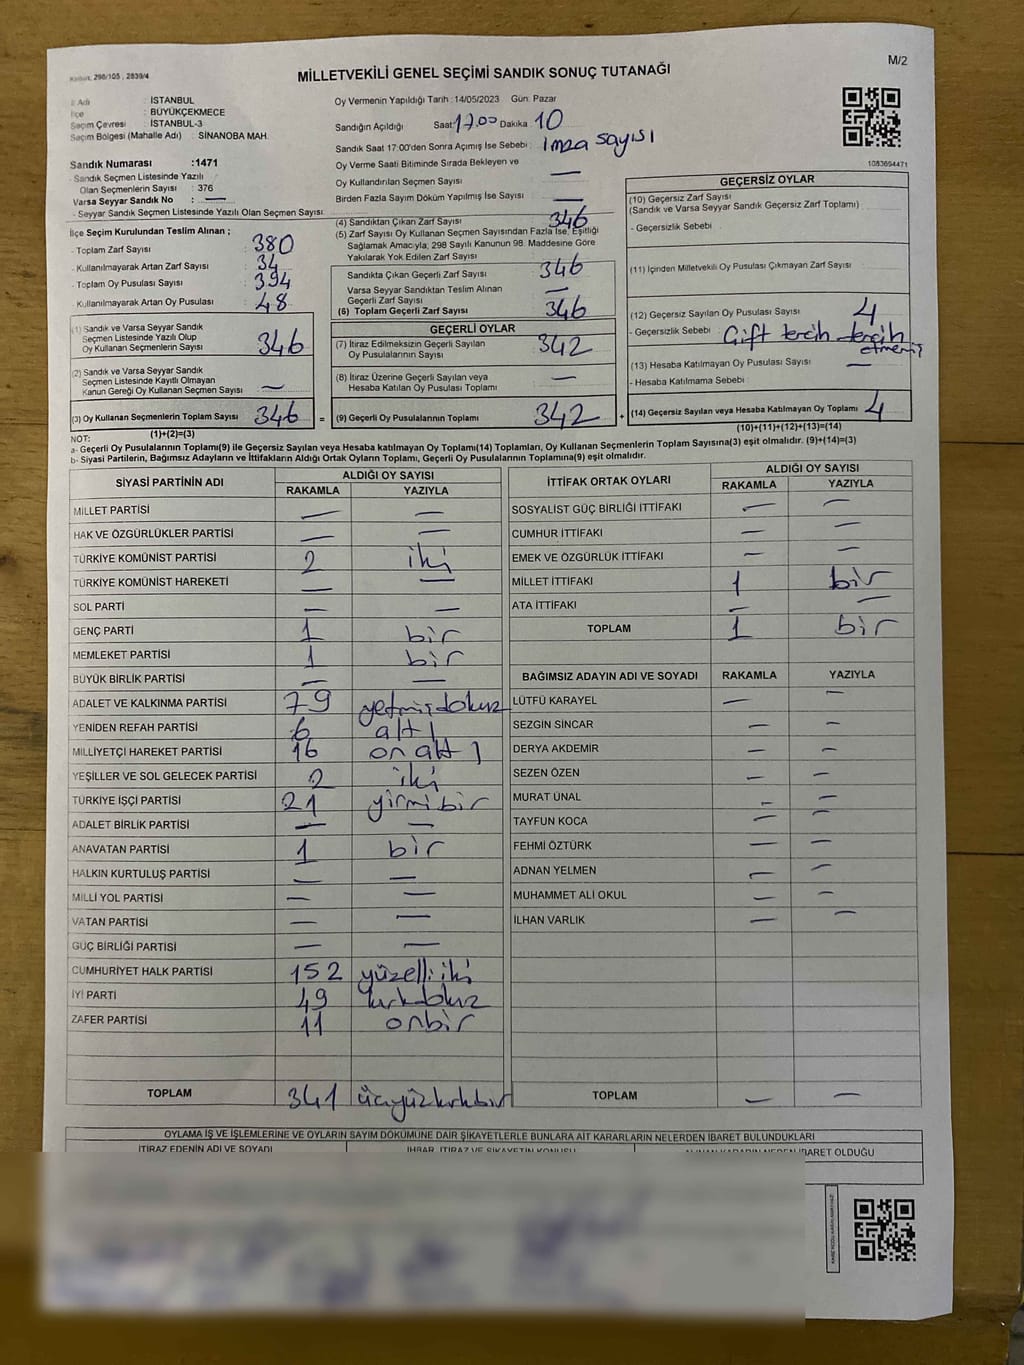 Kanun: 298/105 , 2839/4
M/2
MİLLETVEKİLİ GENEL SEÇİMİ SANDIK SONUÇ TUTANAĞI
İl Adı : İSTANBUL
İlçe : BÜYÜKÇEKMECE
Seçim Çevresi : İSTANBUL-3
Seçim Bölgesi (Mahalle Adı) : SİNANOBA MAH.
Sandık Numarası :1471
- Sandık Seçmen Listesinde Yazılı
Olan Seçmenlerin Sayısı : 376
Varsa Seyyar Sandık No : —
- Seyyar Sandık Seçmen Listesinde Yazılı Olan Seçmen Sayısı:
İlçe Seçim Kurulundan Teslim Alınan ;
- Toplam Zarf Sayısı : 380
- Kullanılmayarak Artan Zarf Sayısı : 34
- Toplam Oy Pusulası Sayısı : 394
- Kullanılmayarak Artan Oy Pusulası : 48
(1) Sandık ve Varsa Seyyar Sandık
Seçmen Listesinde Yazılı Olup
Oy Kullanan Seçmenlerin Sayısı 346
(2) Sandık ve Varsa Seyyar Sandık
Seçmen Listesinde Kayıtlı Olmayan
Kanun Gereği Oy Kullanan Seçmen Sayısı : —
(3) Oy Kullanan Seçmenlerin Toplam Sayısı 346 =
(1)+(2)=(3)
Oy Vermenin Yapıldığı Tarih : 14/05/2023 Gün: Pazar
Sandığın Açıldığı Saat: 17.00 Dakika : 10
Sandık Saat 17:00'den Sonra Açımış İse Sebebi : imza sayısı
Oy Verme Saati Bitiminde Sırada Bekleyen ve
Oy Kullandırılan Seçmen Sayısı : —
Birden Fazla Sayım Döküm Yapılmış İse Sayısı : —
(4) Sandıktan Çıkan Zarf Sayısı : 346
(5) Zarf Sayısı Oy Kullanan Seçmen Sayısından Fazla İse, Eşitliği
Sağlamak Amacıyla, 298 Sayılı Kanunun 98. Maddesine Göre
Yakılarak Yok Edilen Zarf Sayısı :
Sandıkta Çıkan Geçerli Zarf Sayısı : 346
Varsa Seyyar Sandıktan Teslim Alınan
Geçerli Zarf Sayısı : —
(6) Toplam Geçerli Zarf Sayısı : 346
GEÇERLİ OYLAR
(7) İtiraz Edilmeksizin Geçerli Sayılan
Oy Pusulalarının Sayısı : 342
(8) İtiraz Üzerine Geçerli Sayılan veya
Hesaba Katılan Oy Pusulası Toplamı : —
(9) Geçerli Oy Pusulalarının Toplamı 342 +
1083694471
GEÇERSİZ OYLAR
(10) Geçersiz Zarf Sayısı :
(Sandık ve Varsa Seyyar Sandık Geçersiz Zarf Toplamı)
- Geçersizlik Sebebi :
(11) İçinden Milletvekili Oy Pusulası Çıkmayan Zarf Sayısı :
(12) Geçersiz Sayılan Oy Pusulası Sayısı : 4
- Geçersizlik Sebebi : Çift tercih tercih
etmemiş
(13) Hesaba Katılmayan Oy Pusulası Sayısı : —
- Hesaba Katılmama Sebebi :
(14) Geçersiz Sayılan veya Hesaba Katılmayan Oy Toplamı : 4
(10)+(11)+(12)+(13)=(14)
NOT:
a- Geçerli Oy Pusulalarının Toplamı(9) ile Geçersiz Sayılan veya Hesaba katılmayan Oy Toplamı(14) Toplamları, Oy Kullanan Seçmenlerin Toplam Sayısına(3) eşit olmalıdır. (9)+(14)=(3)
b- Siyasi Partilerin, Bağımsız Adayların ve İttifakların Aldığı Ortak Oyların Toplamı, Geçerli Oy Pusulalarının Toplamına(9) eşit olmalıdır.
SİYASİ PARTİNİN ADI ALDIĞI OY SAYISI
RAKAMLA YAZIYLA
MİLLET PARTİSİ — —
HAK VE ÖZGÜRLÜKLER PARTİSİ — —
TÜRKİYE KOMÜNİST PARTİSİ 2 iki
TÜRKİYE KOMÜNİST HAREKETİ — —
SOL PARTİ — —
GENÇ PARTİ 1 bir
MEMLEKET PARTİSİ 1 bir
BÜYÜK BİRLİK PARTİSİ — —
ADALET VE KALKINMA PARTİSİ 79 yetmişdokuz
YENİDEN REFAH PARTİSİ 6 altı
MİLLİYETÇİ HAREKET PARTİSİ 16 on altı
YEŞİLLER VE SOL GELECEK PARTİSİ 2 iki
TÜRKİYE İŞÇİ PARTİSİ 21 yirmi bir
ADALET BİRLİK PARTİSİ — —
ANAVATAN PARTİSİ 1 bir
HALKIN KURTULUŞ PARTİSİ — —
MİLLİ YOL PARTİSİ — —
VATAN PARTİSİ — —
GÜÇ BİRLİĞİ PARTİSİ — —
CUMHURİYET HALK PARTİSİ 152 yüzelli iki
İYİ PARTİ 49 kırkdokuz
ZAFER PARTİSİ 11 onbir
TOPLAM 341 üçyüzkırkbir
İTTİFAK ORTAK OYLARI ALDIĞI OY SAYISI
RAKAMLA YAZIYLA
SOSYALİST GÜÇ BİRLİĞİ İTTİFAKI — —
CUMHUR İTTİFAKI — —
EMEK VE ÖZGÜRLÜK İTTİFAKI — —
MİLLET İTTİFAKI 1 bir
ATA İTTİFAKI — —
TOPLAM 1 bir
BAĞIMSIZ ADAYIN ADI VE SOYADI RAKAMLA YAZIYLA
LÜTFÜ KARAYEL — —
SEZGİN SİNCAR — —
DERYA AKDEMİR — —
SEZEN ÖZEN — —
MURAT ÜNAL — —
TAYFUN KOCA — —
FEHMİ ÖZTÜRK — —
ADNAN YELMEN — —
MUHAMMET ALİ OKUL — —
İLHAN VARLIK — —
TOPLAM — —
OYLAMA İŞ VE İŞLEMLERİNE VE OYLARIN SAYIM DÖKÜMÜNE DAİR ŞİKAYETLERLE BUNLARA AİT KARARLARIN NELERDEN İBARET BULUNDUKLARI
İTİRAZ EDENİN ADI VE SOYADI İHBAR, İTİRAZ VE ŞİKAYETİN KONUSU ALINAN KARARIN NEDEN İBARET OLDUĞU